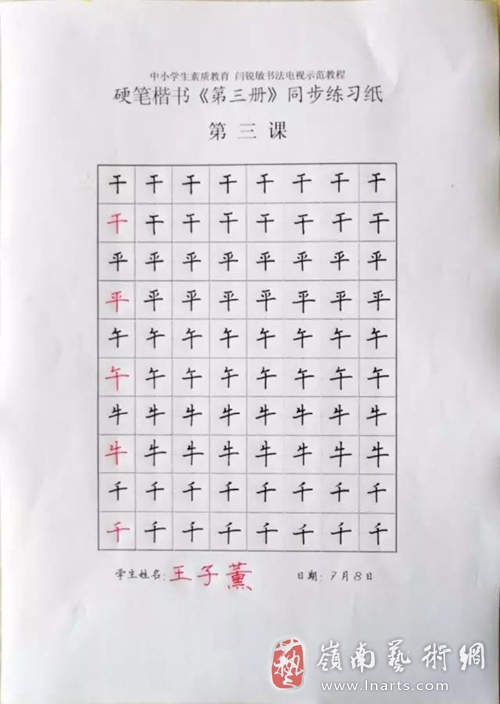 中小学生素质教育 闫锐敏书法电视示范教程
硬笔楷书《第三册》同步练习纸
第三课
干干干干干干干干
干干干干干干干干
平平平平平平平平
平平平平平平平平
午午午午午午午午
午午午午午午午午
牛牛牛牛牛牛牛牛
牛牛牛牛牛牛牛牛
千千千千千千千千
千千千千千千千千
学生姓名:王子薰 日期:7月8日
藝 嶺南藝術網
www.lnarts.com